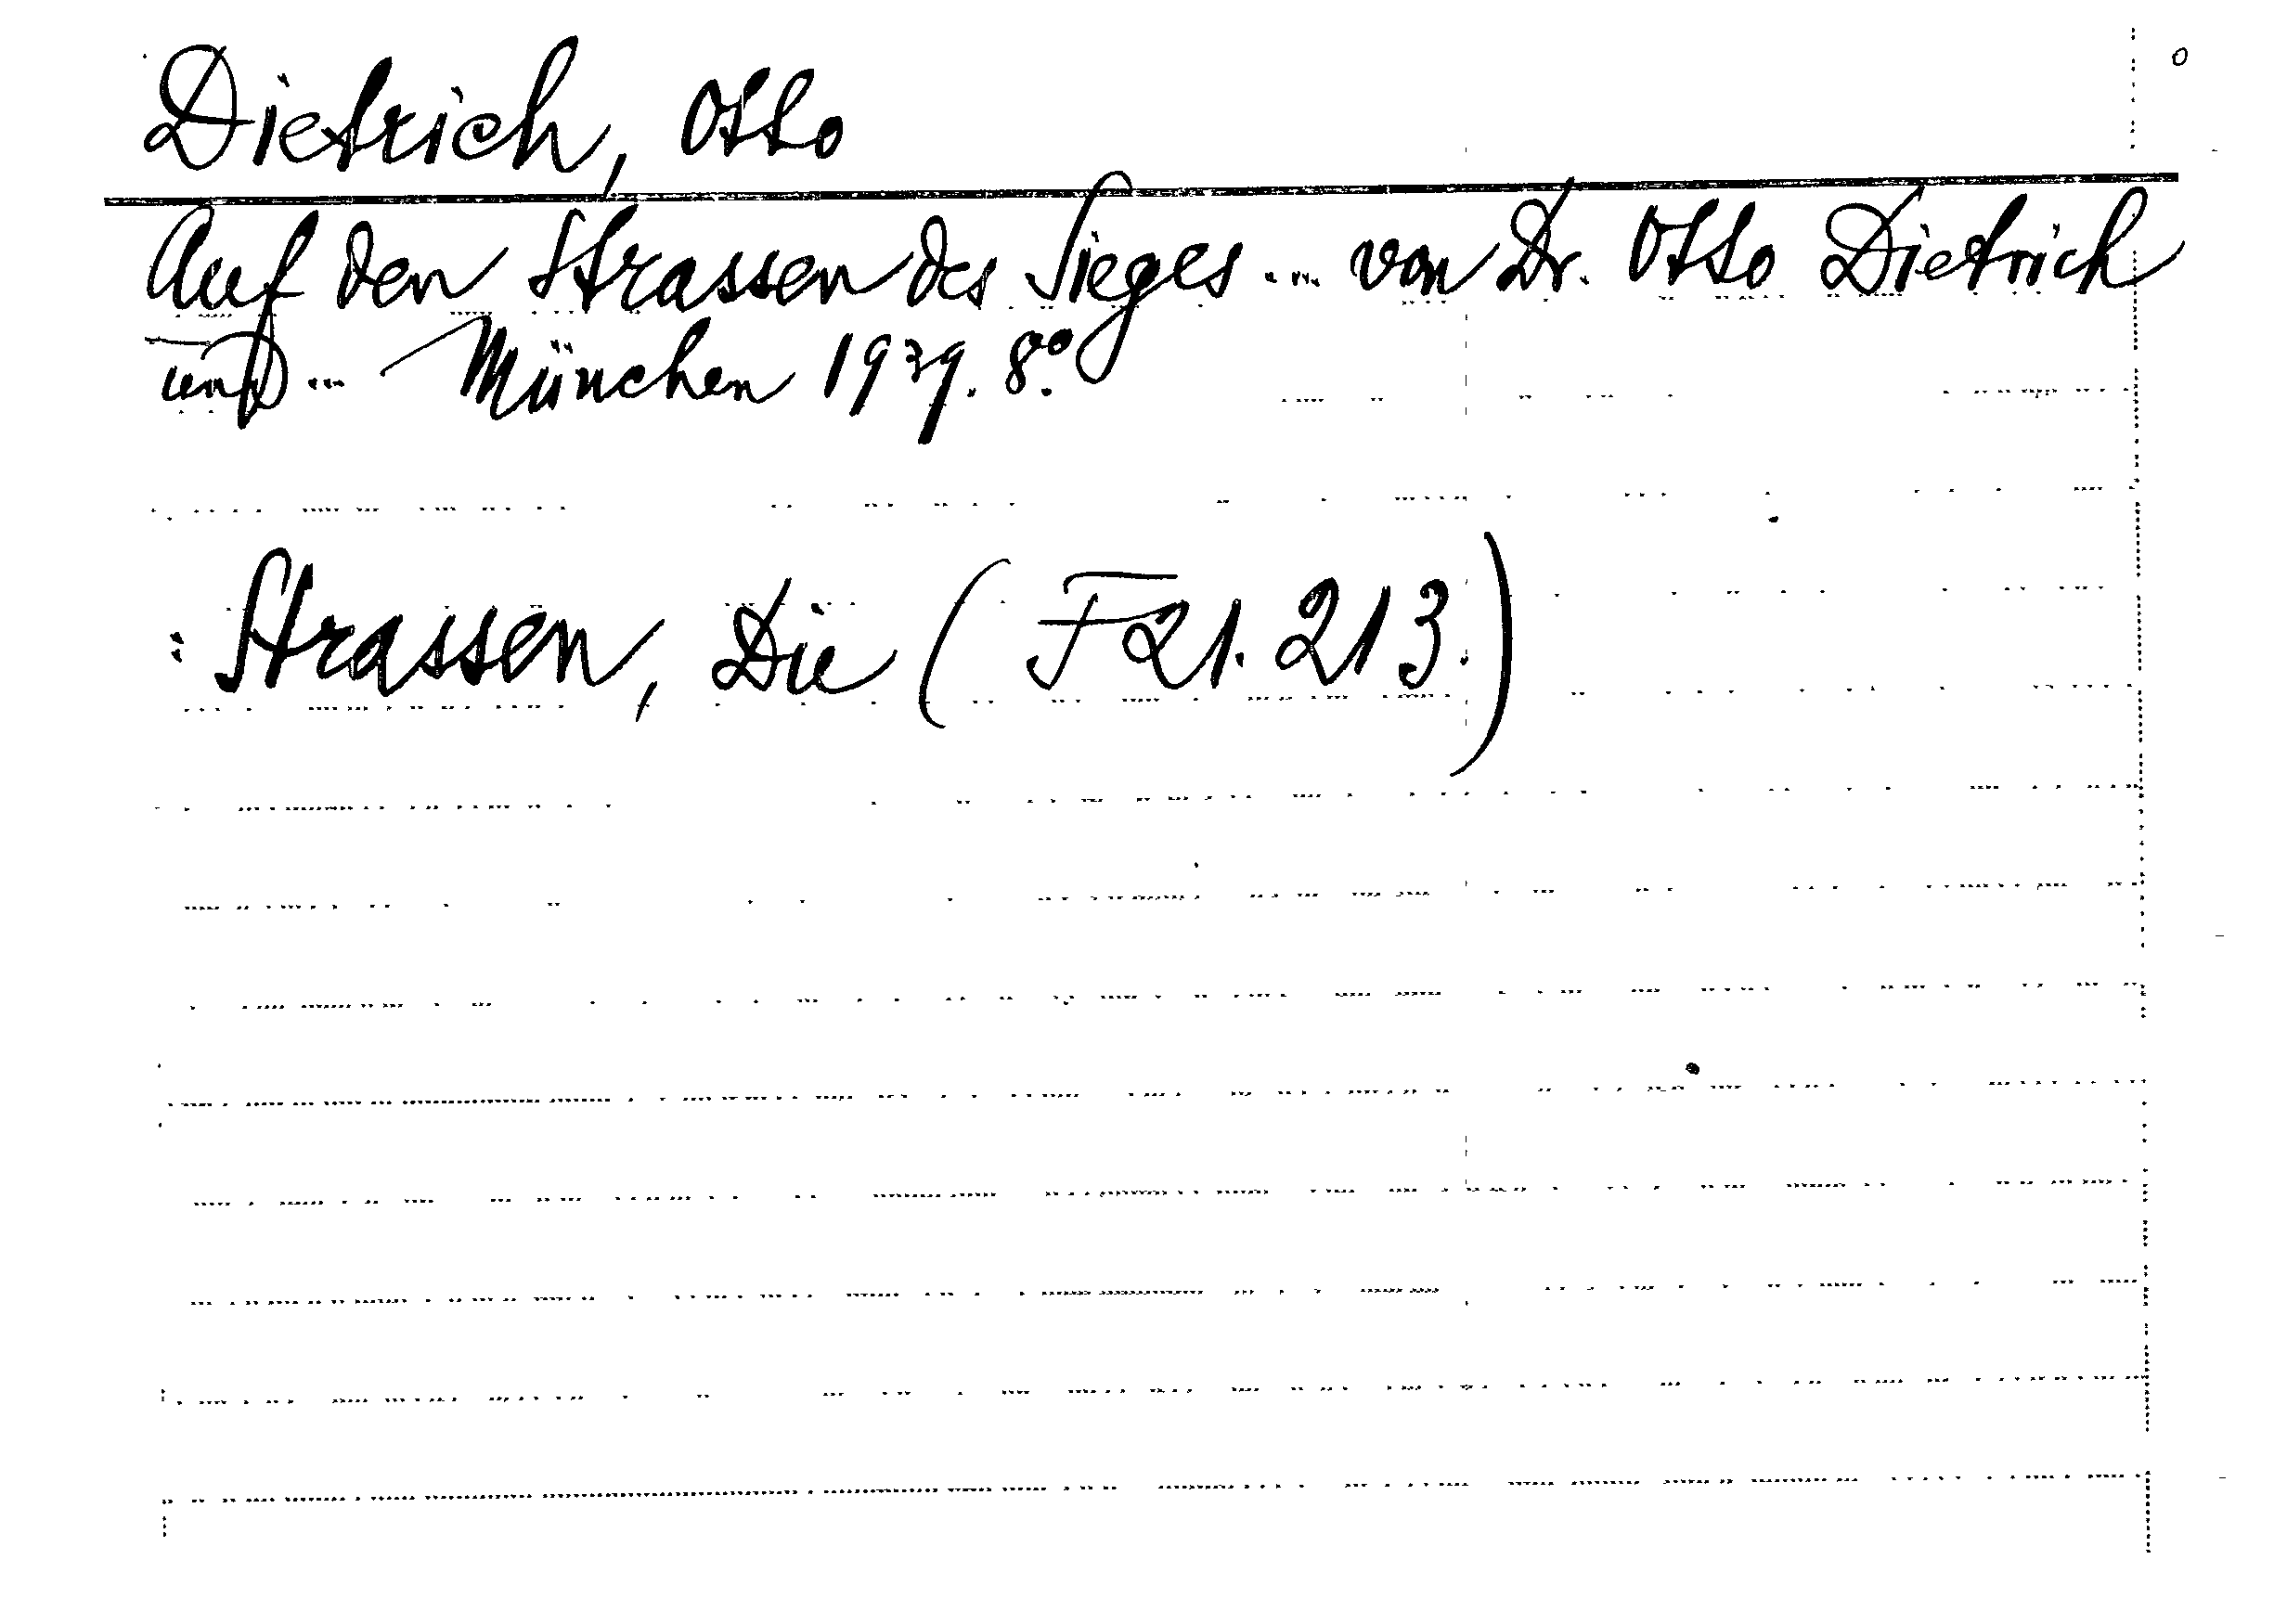 Dietrich, Otto
Auf den Strassen des Sieges ... von Dr. Otto Dietrich
und ... München 1939. 8.º
: Strassen, Die (F 21. 213.)